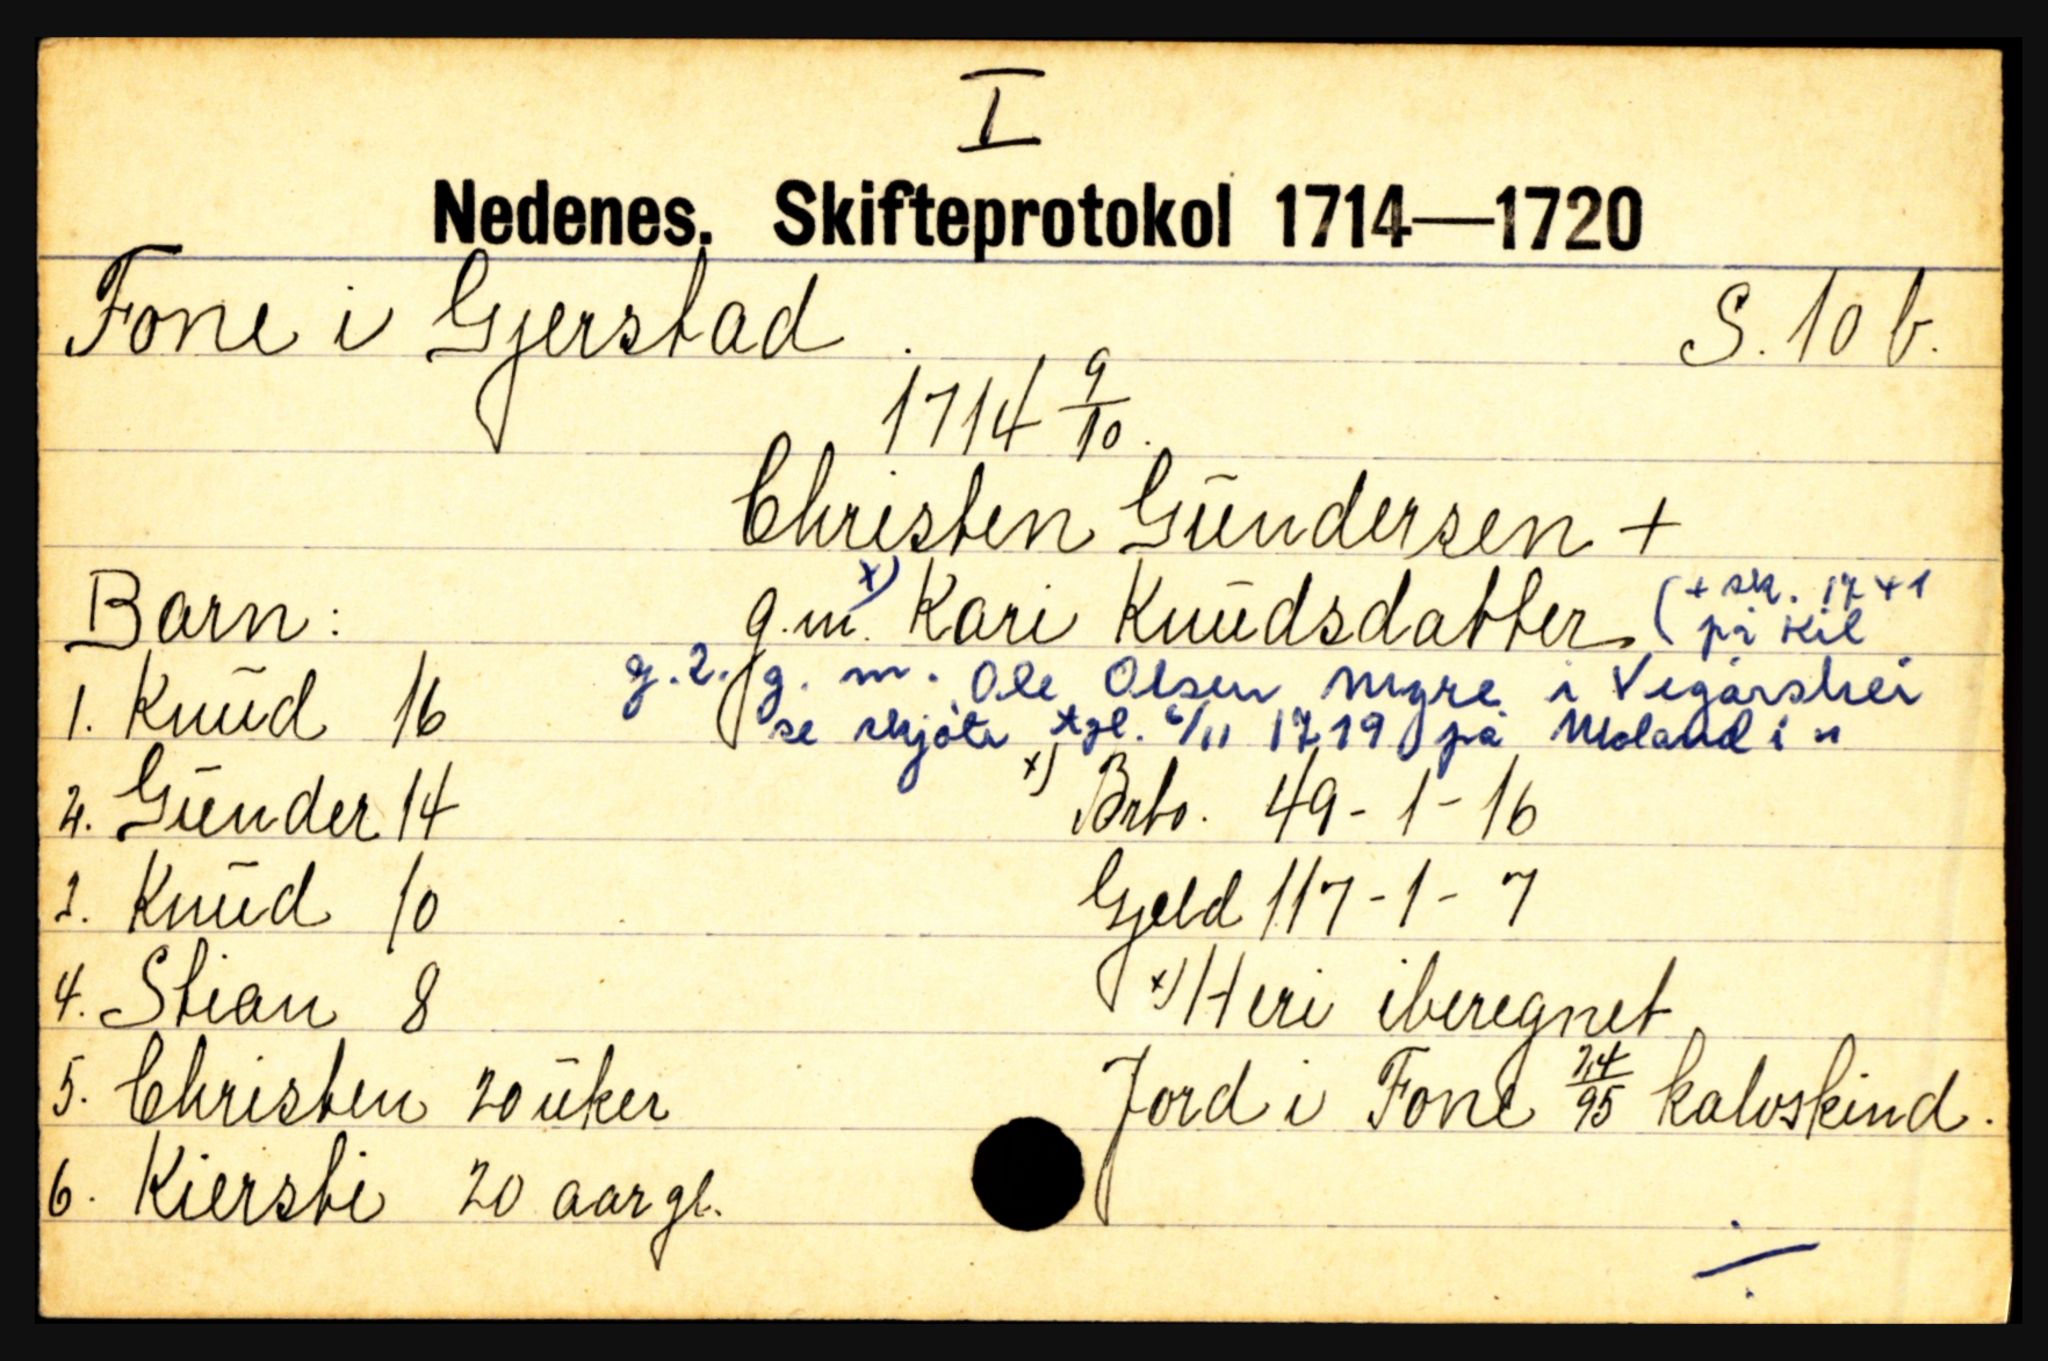 I
Nedenes. Skifteprotokol 1714—1720
Fone i Gjerstad. S. 10 b.
1714 9/10.
Christen Gūndersen +
Barn: g.m. x) Kari Knūdsdatter (+ sk. 1741 på Kil
g.2. g. m. Ole Olsen Myre i Vegårshei
1. Knūd 16 se skjöte tgl. 6/11 1719 på Moland i "
2. Gūnder 14 x) Brto. 49-1-16
3. Knūd 10 Gjeld 117-1-7
4. Stian 8 x) Heri iberegnet
5. Christen 20 ūker Jord i Fone 24/95 kalvskind.
6. Kiersti 20 aar gl.